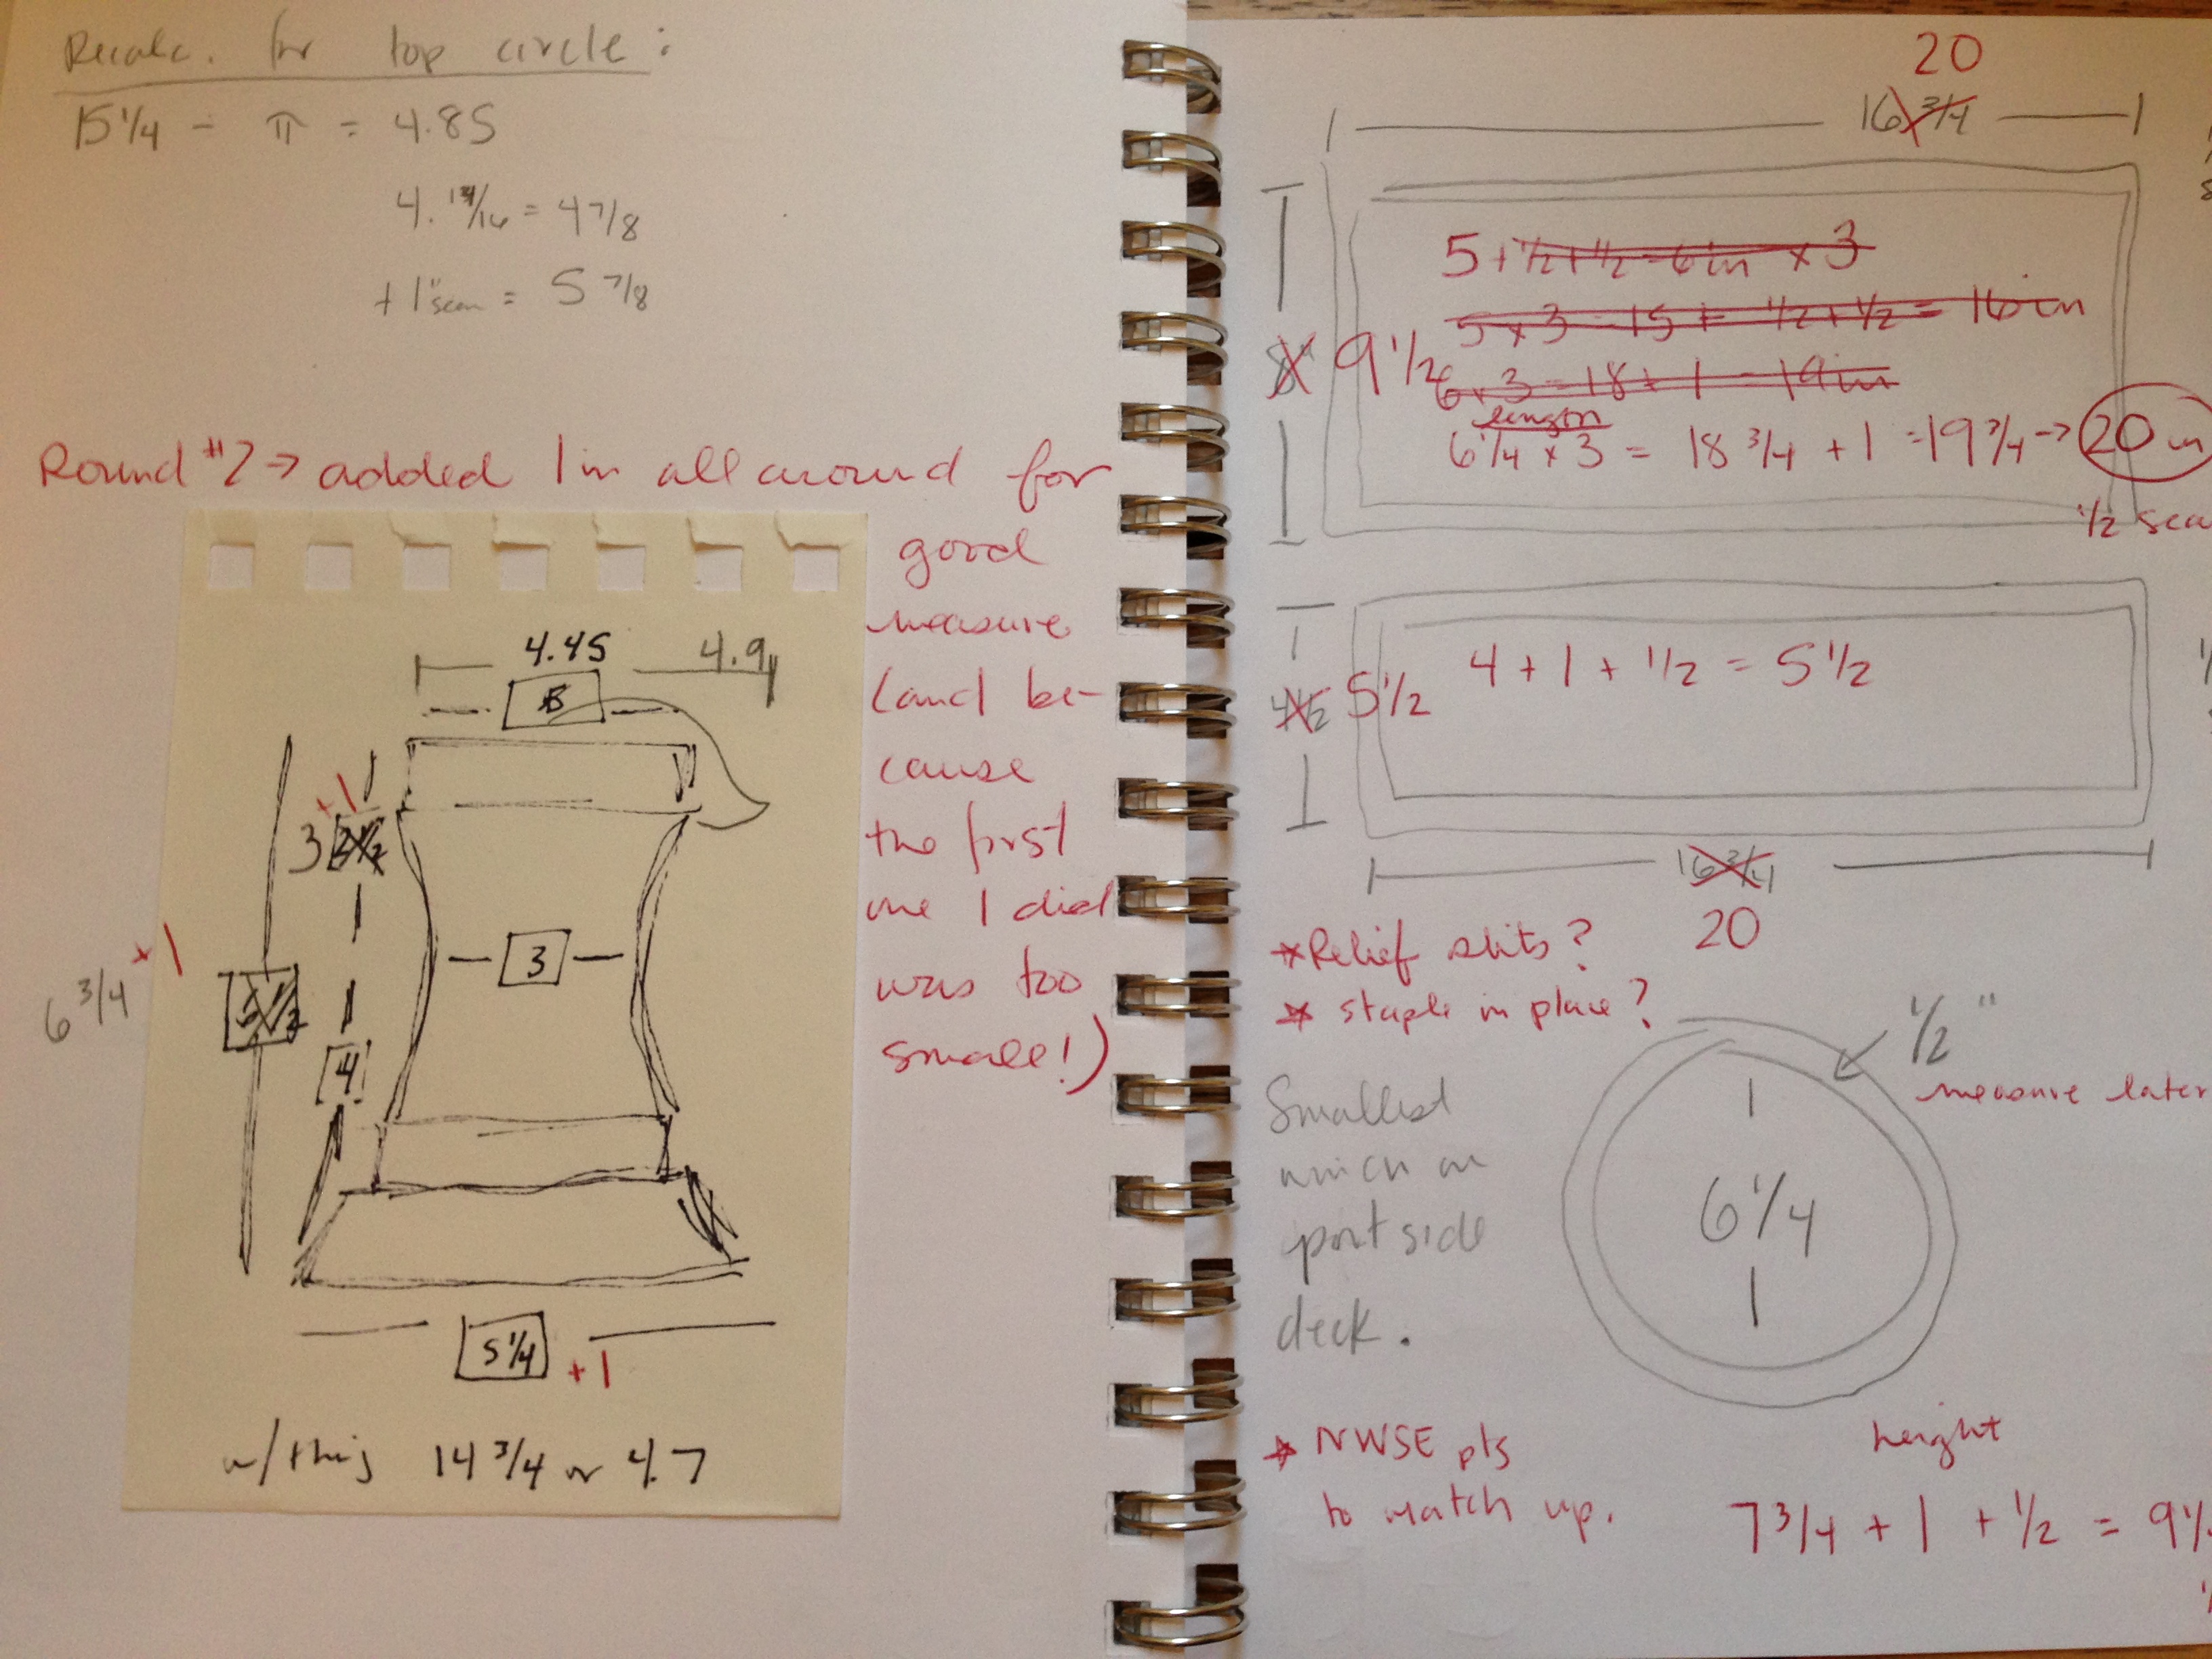 Recalc. for top circle:
15 1/4 ÷ π = 4.85
4. 13/16 = 4 7/8
+ 1" seam = 5 7/8
Round #2 → added 1 in all around for
good
measure
(and be-
cause
the first
one I did
was too
small!)
4.45
4.9
+1
3
3
6 3/4 +1
4
5 1/4 +1
w/ this 14 3/4 or 4.7
20
16 3/4
5 + 1/2 + 1/2 = 6 in x 3
5 x 3 = 15 + 1/2 + 1/2 = 16 in
8" 9 1/2
6 x 3 = 18 + 1 = 19 in
length
6 1/4 x 3 = 18 3/4 + 1 = 19 3/4 → 20 in
1/2 sea
4 + 1 + 1/2 = 5 1/2
4 1/2 5 1/2
16 3/4
20
* Relief slits?
* staple in place?
1/2"
measure later
Smallest
winch on
port side
deck.
6 1/4
* NWSE pts
to match up.
height
7 3/4 + 1 + 1/2 = 9 1/